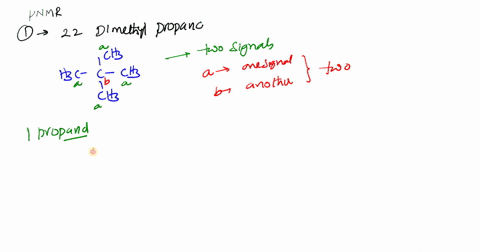 PNMR
① → 22 Dimethyl Propane
a
CH3
H3C - C - CH3
a b a
CH3
a
→ two signals
a → one signal
b → another
} two
1 propanol